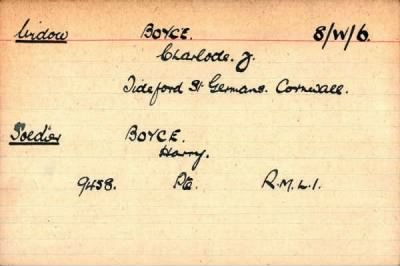 Widow BOYCE. 8/W/6.
Charlode. J.
Tideford St Germans. Cornwall.
Soldier BOYCE.
Harry.
9458. Pte. R.M.L.I.